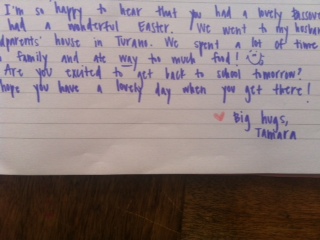 I'm so happy to hear that you had a lovely Passover
had a wonderful Easter. We went to my husban
dparents' house in Turano. We spent a lot of time
family and ate way too much food!
Are you excited to get back to school tomorrow?
hope you have a lovely day when you get there!
Big hugs,
Tamara